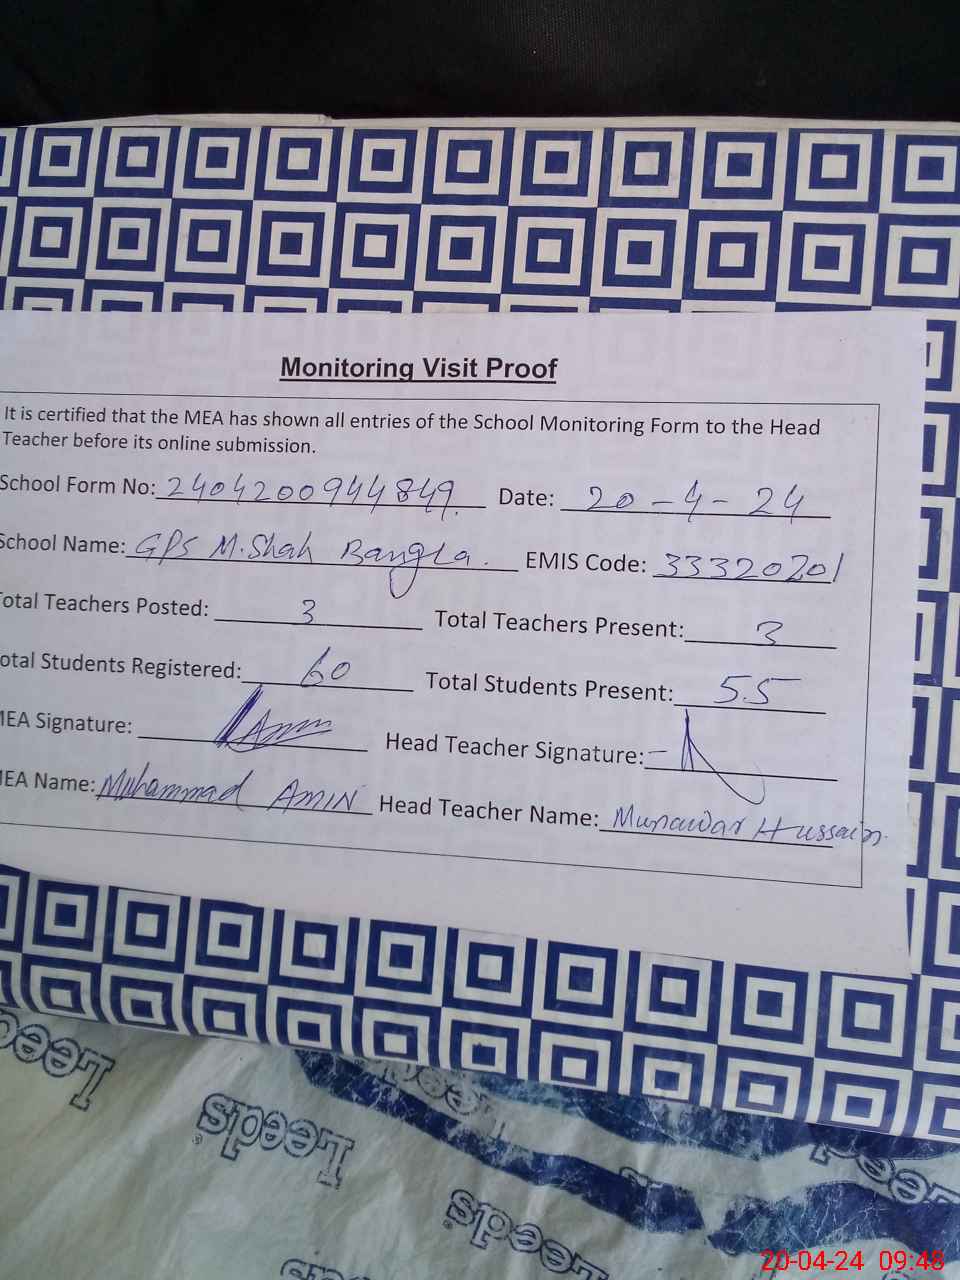 Monitoring Visit Proof
It is certified that the MEA has shown all entries of the School Monitoring Form to the Head
Teacher before its online submission.
School Form No: 2404200944849 Date: 20-4-24
School Name: GPS M.Shah Bangla. EMIS Code: 33320201
Total Teachers Posted: 3 Total Teachers Present: 3
otal Students Registered: 60 Total Students Present: 55
MEA Signature: Amin Head Teacher Signature:
MEA Name: Muhammad AMIN Head Teacher Name: Munawar Hussain
Leeds
Leeds
Leeds
Leeds
20-04-24 09:48